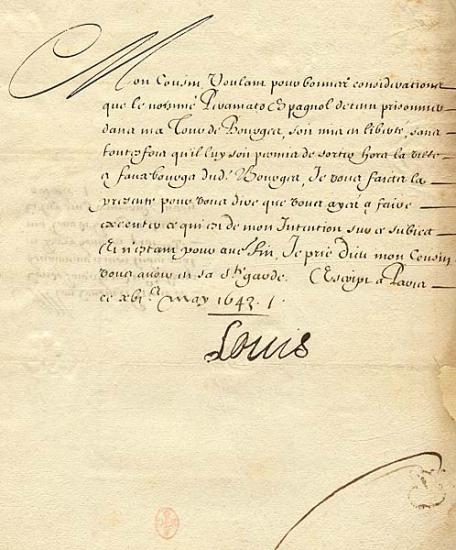 Mon Cousin Voulant pour bonnes considerations
que le nommé Espagnol detenu prisonnier
dans ma Tour de Bourges, soit mis en liberté, sans
toutesfois qu'il luy soit permis de sortir hors la ville
et fauxbourgs dud. Bourges, Je vous faictz la
presente pour vous dire que vous ayez a faire
executer ce qui est de mon Intention sur ce subiect
Et n'estant pour autre fin, Je prie Dieu mon Cousin
vous avoir en sa ste garde. Escript a Paris
ce may 1643 .
Louis